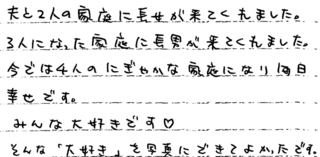 夫と2人の家庭に長女が来てくれました。
3人になった家庭に長男が来てくれました。
今では4人のにぎやかな家庭になり毎日
幸せです。
みんな大好きです♡
そんな「大好き」を写真にできてよかったです。